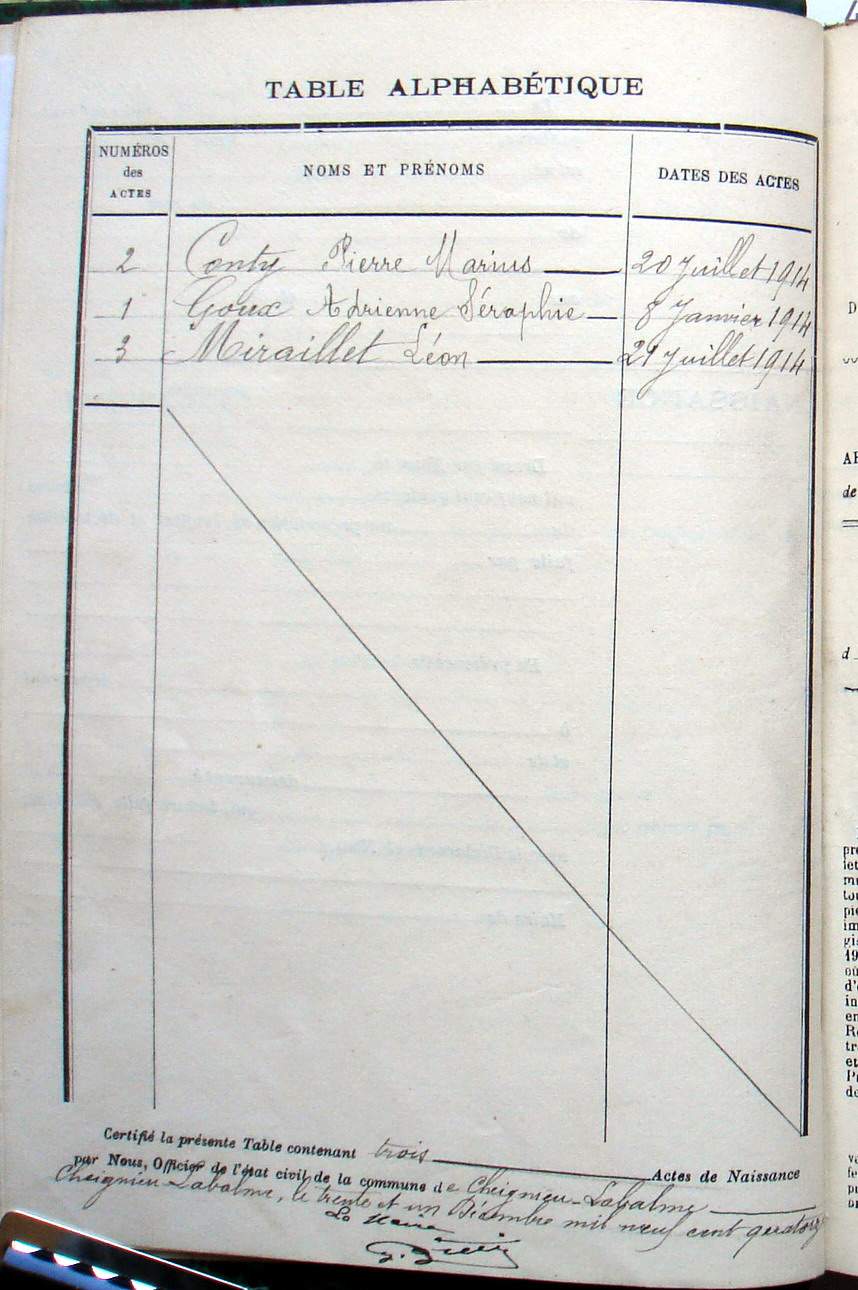 TABLE ALPHABÉTIQUE
NUMÉROS des ACTES NOMS ET PRÉNOMS DATES DES ACTES
2 Conty Pierre Marius 20 Juillet 1914
1 Goux Adrienne Séraphie 8 Janvier 1914
3 Miraillet Léon 21 Juillet 1914
Certifié la présente Table contenant trois Actes de Naissance
par Nous, Officier de l'état civil de la commune de Cheignieu-Labalme
Cheignieu Labalme, le trente et un Décembre mil neuf cent quatorze
Le Maire